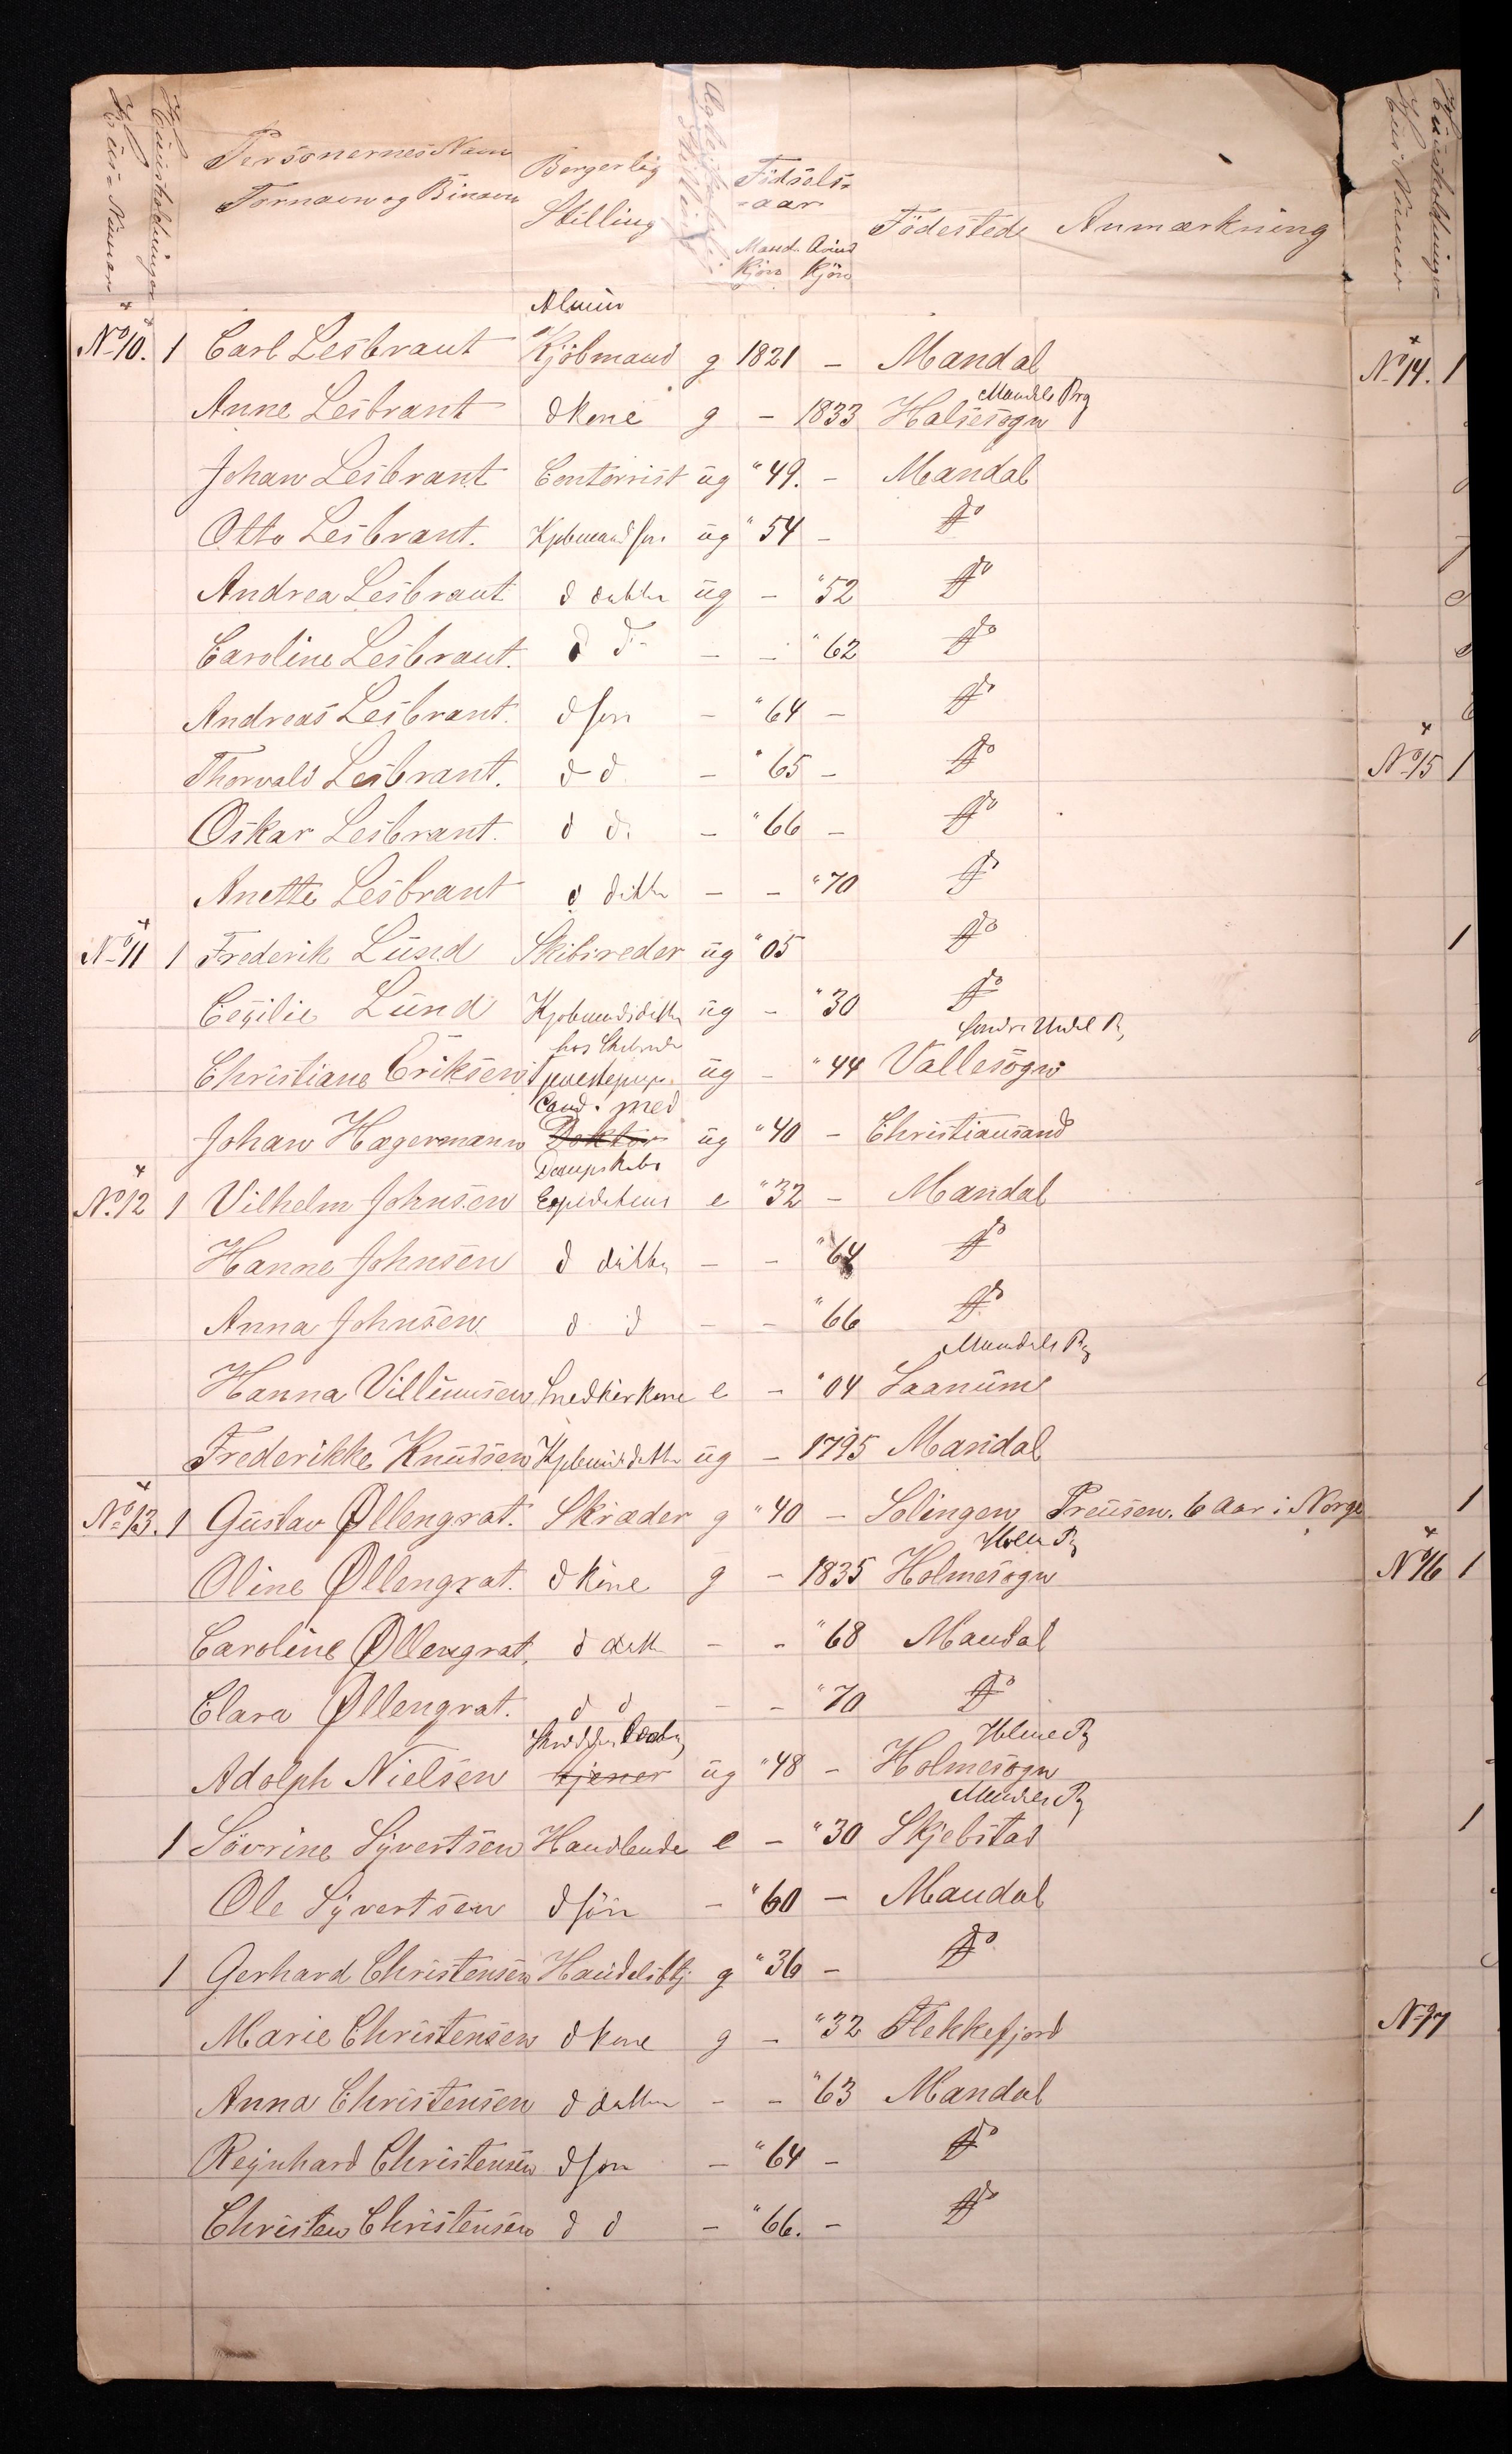 Huusholdninger
Huus-Numer
Personernes Navn
Fornavn og Binavn
Borgerlig
Stilling
Födsels-
-aar
Mand. Qvind
Kjön Kjön
Födestede Anmærkning
Huusholdninger
Huus-Numer
No 10. 1 Carl Lesbrant Kjöbmand g 1821 - Mandal
Anne Lesbrant d kone g - 1833 Halsesogn Mandals Prg
Johan Lesbrant Contorist ug " 49. - Mandal
Otto Lesbrant. Kjobmand søn ug " 54 - do
Andrea Lesbrant d datter ug - " 52 do
Caroline Lesbrant. d d - - " 62 do
Andreas Lesbrant. d søn - " 64 - do
Thorvald Lesbrant. d d - " 65 - do
Oskar Lesbrant. d d - " 66 - do
Anette Lesbrant d datter - - " 70 do
No 11 1 Frederik Lund Skibsreder ug " 05 do
Cecilie Lund Kjobmandsdatter ug - " 30 do
hos Söndre Undal P
Christiane Eriksen Tjenestepige ug - " 44 Vallesogn
Cand. med
Johan Hagermann Doktor ug " 40 - Christiansand
Dampskibs
No. 12 1 Vilhelm Johnsen Expediteur e " 32 - Mandal
Hanne Johnsen d datter - - " 64 do
Anna Johnsen d d - - " 66 do
Mandals Pg
Hanna Villumsen Snedkerkone e - " 04 Laanum
Frederikke Knudsen Kjobmandsdatter ug - 1795 Mandal
No 13. 1 Gustav Øllengrat. Skræder g " 40 - Solingen Preusen. 6 Aar i Norge
Holme Pg
Oline Øllengrat. d kone g - 1835 Holmesogn
Caroline Øllengrat. d datt - - " 68 Mandal
Clara Øllengrat. d d - - " 70 do
Holme Pg
Adolph Nielsen tjener ug " 48 - Holmesogn
Mandals Pg
1 Sövrine Syvertsen Handlende e - " 30 Skjebstad
Ole Syvertsen d sön - " 60 - Mandal
1 Gerhard Christensen Handelsbtj g " 36 - do
Marie Christensen d kone g - " 32 Flekkefjord
Anna Christensen d datter - - " 63 Mandal
Rejnhard Christensen d søn - " 64 - do
Christen Christensen d d - " 66. - do
No 14. 1
No 15 1
1
1
No 16 1
1
No 17